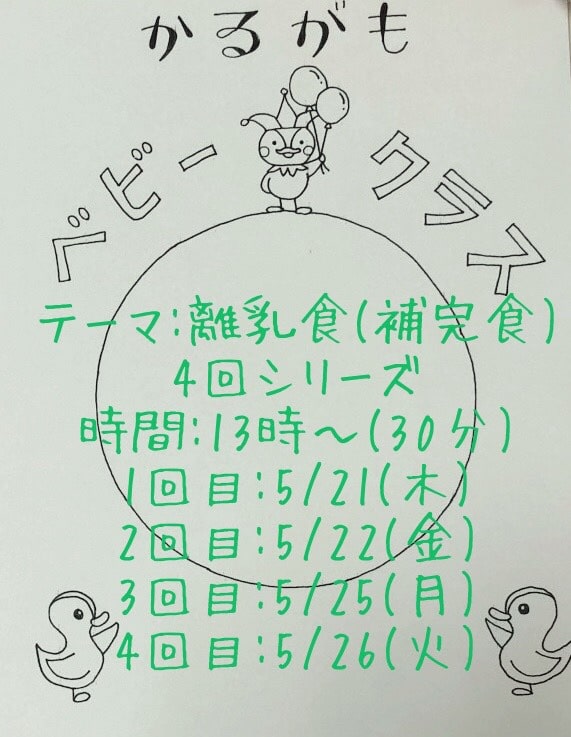 かるがも
ベビークラス
テーマ:離乳食(補完食)
4回シリーズ
時間:13時～(30分)
1回目:5/21(木)
2回目:5/22(金)
3回目:5/25(月)
4回目:5/26(火)